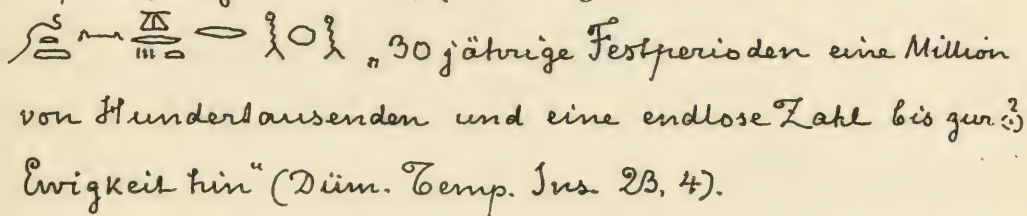 „30 jährige Festperioden eine Million
von Hunderttausenden und eine endlose Zahl bis zur (?)
Ewigkeit hin“ (Düm. Temp. Ins. 23, 4).